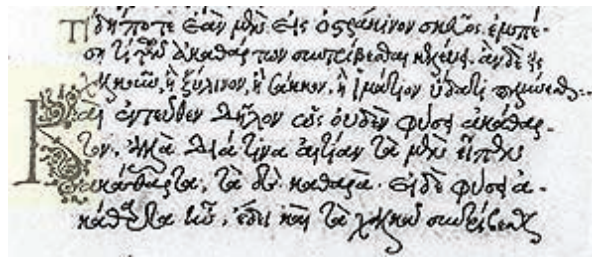 Τί δήποτε ἐὰν μὲν εἰς ὀστράκινον σκεῦος ἐμπέ-
ση τὶ τῶν ἀκαθάρτων συντρίβεσθαι κελεύει, ἂν δὲ εἰς
χαλκοῦν, ἢ ξύλινον, ἢ σάκκον, ἢ ἱμάτιον ὕδατι
Καὶ ἐντεῦθεν δῆλον ὡς οὐδὲν φύσει ἀκάθαρ-
τον. ἀλλὰ διά τινα αἰτίαν τὰ μὲν εἶπεν
ἀκάθαρτα, τὰ δὲ καθαρά. εἰ δὲ φύσει ἀ-
κάθαρτα ἦν, ἔδει καὶ τὰ χαλκᾶ συντρίβεσθαι